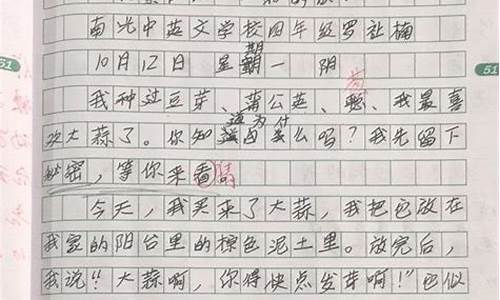 南光中英文学校四年经罗祉楠
10月12日 星期一 阴
我种过豆芽、蒲公英、葱、我最喜
欢大蒜了。你知道为什么吗?我先留下
秘密,等你来看猜。
今天,我买来了大蒜,我把它放在
我家的阳台里的棕色泥土里。放完后,
我说“大蒜啊,你得快点发芽啊!”它似
51
51